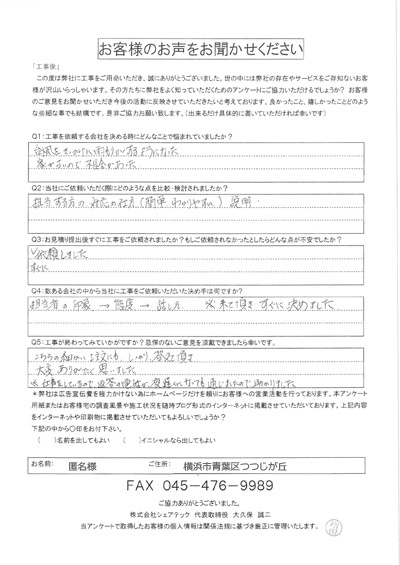 お客様のお声をお聞かせください
「工事後」
この度は弊社に工事をご用命いただき、誠にありがとうございました。世の中には弊社の存在やサービスをご存知ないお客
様が沢山いらっしゃいます。その方たちに弊社をよく知っていただくためのアンケートにご協力いただけるでしょうか? お客
様のご意見をお聞かせいただき今後の活動に反映させていただきたいと考えております。良かったこと、嬉しかったことどのよう
な些細な事でも結構です。是非ご協力お願い致します。(出来るだけ具体的に書いていただければ幸いです)
Q1:工事を依頼する会社を決める時にどんなことで悩まれていましたか?
台風をきっかけに雨もりがするようになった
家が古いので不安があった
Q2:当社にご依頼いただく際にどのような点を比較・検討されましたか?
担当する方の対応の仕方(簡単 わかりやすい)説明
Q3:お見積り提出後すぐに工事をご依頼されましたか?もしご依頼されなかったとしたらどんな点が不安でしたか?
依頼しました
すぐに
Q4:数ある会社の中から当社に工事をご依頼いただいた決め手は何ですか?
担当者の印象→態度→話し方 ※来て頂きすぐに決めました
Q5:工事が終わってみていかがですか?忌憚のないご意見を頂戴できましたら幸いです。
こちらの細かい注文にも しっかり 答えて頂き
大変ありがたく思いました
*弊社は広告宣伝費を極力かけない為にホームページだけを頼りにお客様への営業活動を行っております。本アンケート
用紙またはお客様宅の調査風景や施工状況を随時ブログ形式のインターネットに掲載させていただいております。上記内容
をインターネットや印刷物に掲載させていただいてもよろしいでしょうか?
下記の中から〇印をお付下さい。
( )名前を出してもよい ( )イニシャルなら出してもよい
お名前: 匿名様 ご住所: 横浜市青葉区つつじが丘
FAX 045-476-9989
ご協力ありがとうございました。
株式会社シェアテック 代表取締役 大久保 誠二
当アンケートで取得したお客様の個人情報は関係法規に基づき厳正に管理いたします。